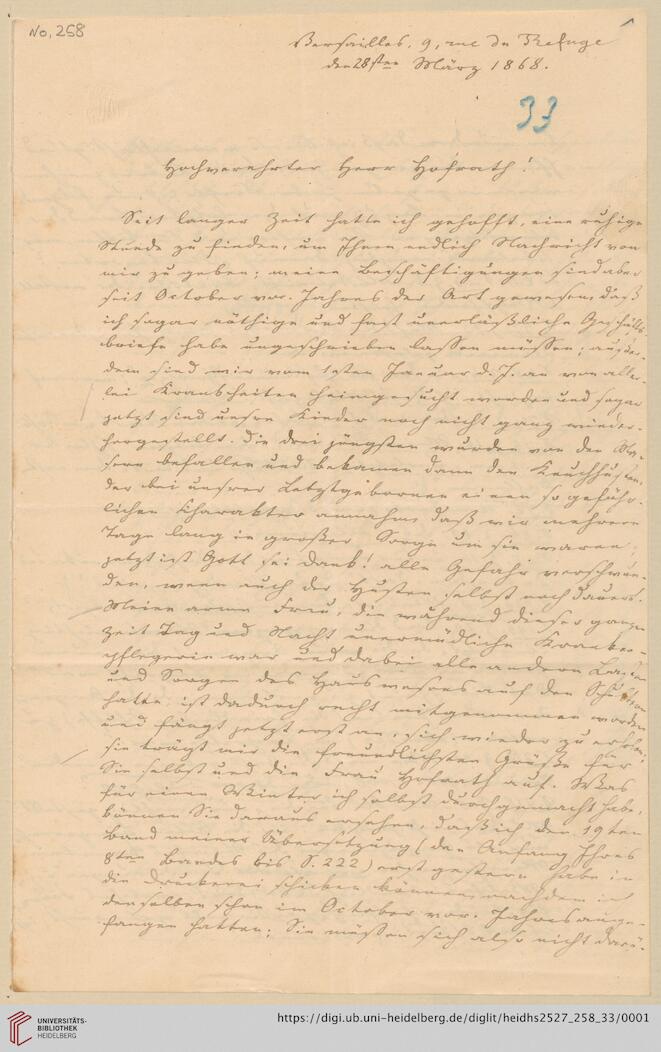 No, 258
Versailles, 9, rue du Refuge
den 28sten März 1868.
33
Hochverehrter Herr Hofrath!
Seit langer Zeit hatte ich gehofft, eine ruhige
Stunde zu finden, um Ihnen endlich Nachricht von
mir zu geben; meine Beschäftigungen sind aber
seit October vor. Jahres der Art gewesen, daß
ich sogar nöthige und fast unerläßliche Geschäfts-
briefe habe ungeschrieben lassen müssen; außer-
dem sind wir vom 1sten Januar d. J. an von aller-
lei Krankheiten heimgesucht worden und sogar
jetzt sind unsre Kinder noch nicht ganz wieder-
hergestellt. Die drei jüngsten wurden von den Ma-
sern befallen und bekamen dann den Keuchhusten,
der bei unsrer Letztgebornen einen so gefähr-
lichen Charakter annahm, daß wir mehrere
Tage lang in großer Sorge um sie waren;
jetzt ist Gott sei Dank! alle Gefahr verschwun-
den, wenn auch der Husten selbst noch dauert.
Meine arme Frau, die während dieser ganzen
Zeit Tag und Nacht unermüdliche Kranken-
pflegerin war und dabei alle andern Lasten
und Sorgen des Hauswesens auf den Schultern
hatte, ist dadurch recht mitgenommen worden
und fängt jetzt erst an, sich wieder zu erholen;
sie trägt mir die freundlichsten Grüße für
Sie selbst und die Frau Hofrath auf. Was
für einen Winter ich selbst durchgemacht habe,
können Sie daraus ersehen, daß ich den 19ten
Band meiner Übersetzung (den Anfang Ihres
8ten Bandes bis S. 222) erst gestern habe in
die Druckerei schicken können, nachdem ich
denselben schon im October vor. Jahres ange-
fangen hatte; Sie müssen sich also nicht darü-
UNIVERSITÄTS-
BIBLIOTHEK
HEIDELBERG
https://digi.ub.uni-heidelberg.de/diglit/heidhs2527_258_33/0001